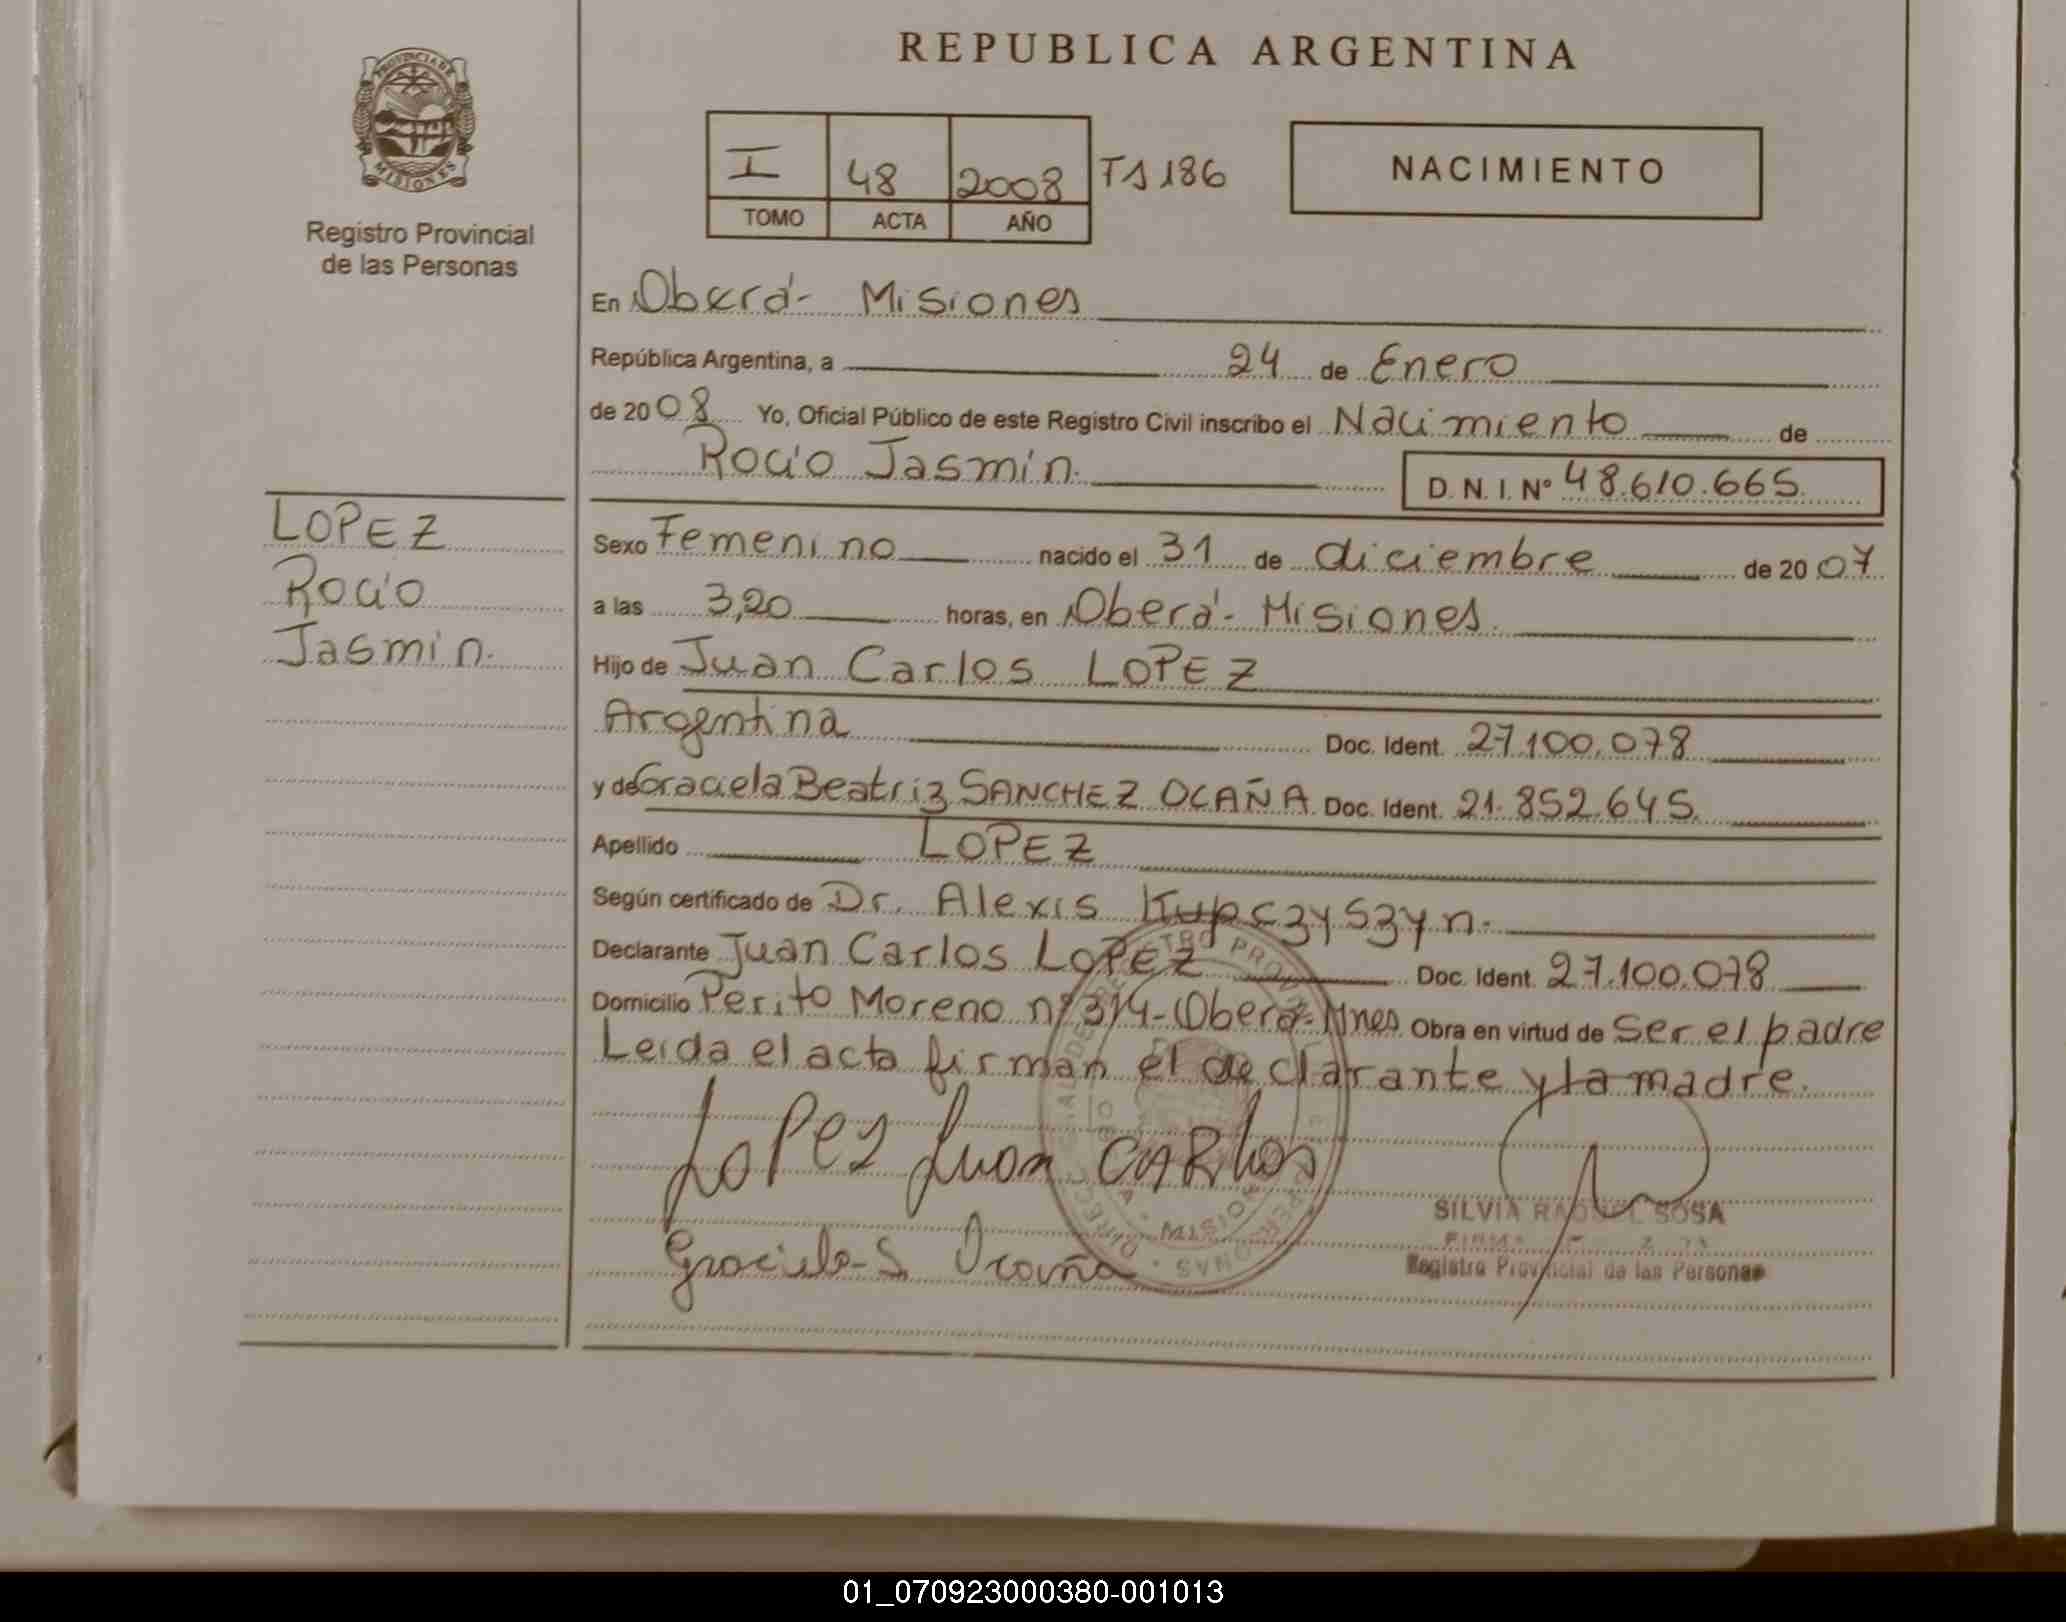 REPUBLICA ARGENTINA
PROVINCIA DE
MISIONES
Registro Provincial
de las Personas
I 48 2008 TS 186
TOMO ACTA AÑO
NACIMIENTO
En Oberá - Misiones
República Argentina, a 24 de Enero
de 2008 Yo, Oficial Público de este Registro Civil inscribo el Nacimiento de
Rocío Jasmín. D. N. I. Nº 48.610.665.
LOPEZ
Rocío
Jasmin.
Sexo Femenino nacido el 31 de diciembre de 2007
a las 3,20 horas, en Oberá - Misiones.
Hijo de Juan Carlos LOPEZ
Argentina Doc. Ident. 27.100.078
y de Graciela Beatriz SANCHEZ OCAÑA Doc. Ident. 21.852.645.
Apellido LOPEZ
Según certificado de Dr. Alexis Kupczyszyn.
Declarante Juan Carlos LOPEZ Doc. Ident. 27.100.078
Domicilio Perito Moreno nº 314 - Oberá - Mnes Obra en virtud de ser el padre
Leída el acta firman el declarante y la madre.
LOPEZ Juan CARlos
Graciela S Ocaña
MISIONES
SILVIA RAQUEL SOSA
Registro Provincial de las Personas
01_070923000380-001013